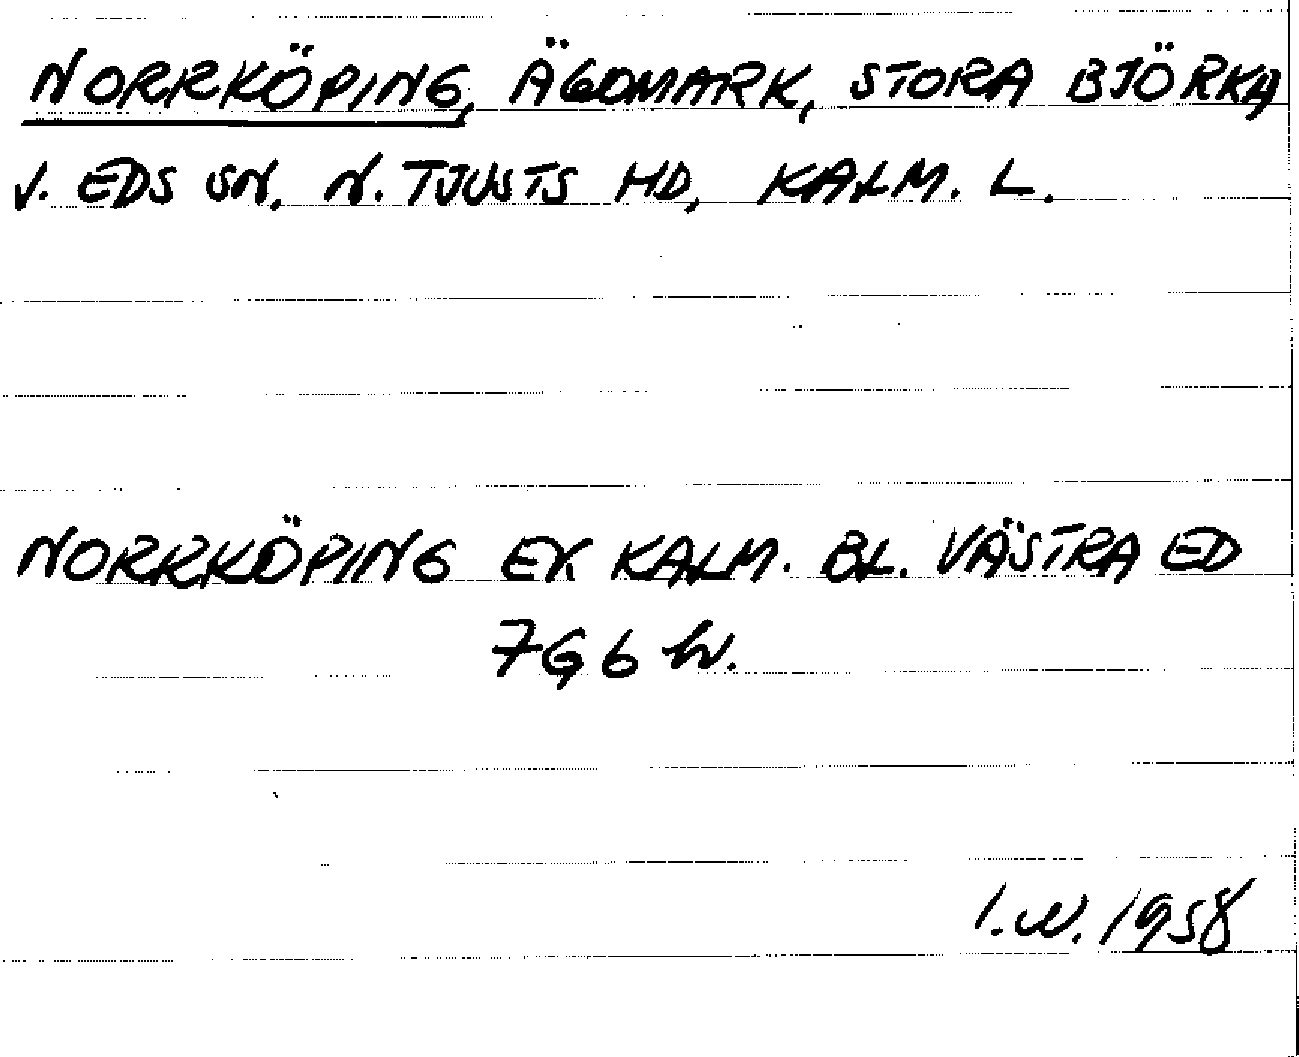 NORRKÖPING, ÄGOMARK, STORA BJÖRKA
V. EDS SN, N. TJUSTS HD, KALM. L.
NORRKÖPING EK KALM. BL. VÄSTRA ED
7G6
1958